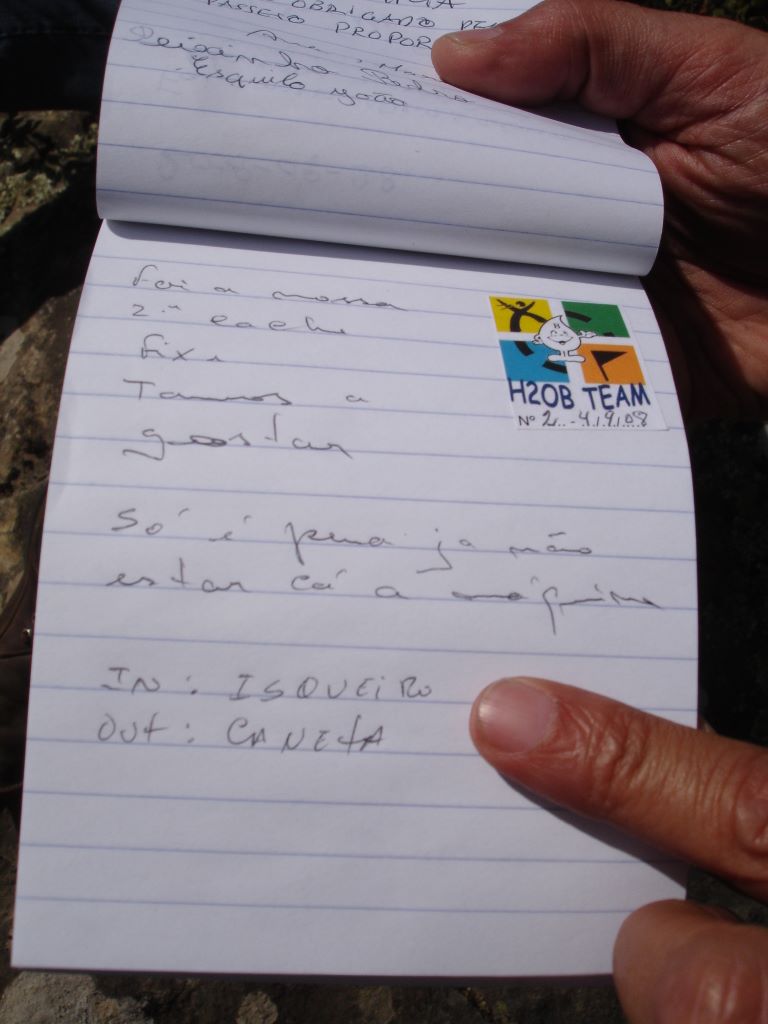 OBRIGADO
PASSEIO PROPOR
Esquilo
Foi a nossa
2.ª cache
fixe
Tamos a
gostar
H2OB TEAM
Nº 2 - 4/9/08
Só é pena ja não
estar cá a máquina
IN: ISQUEIRO
OUT: CANETA